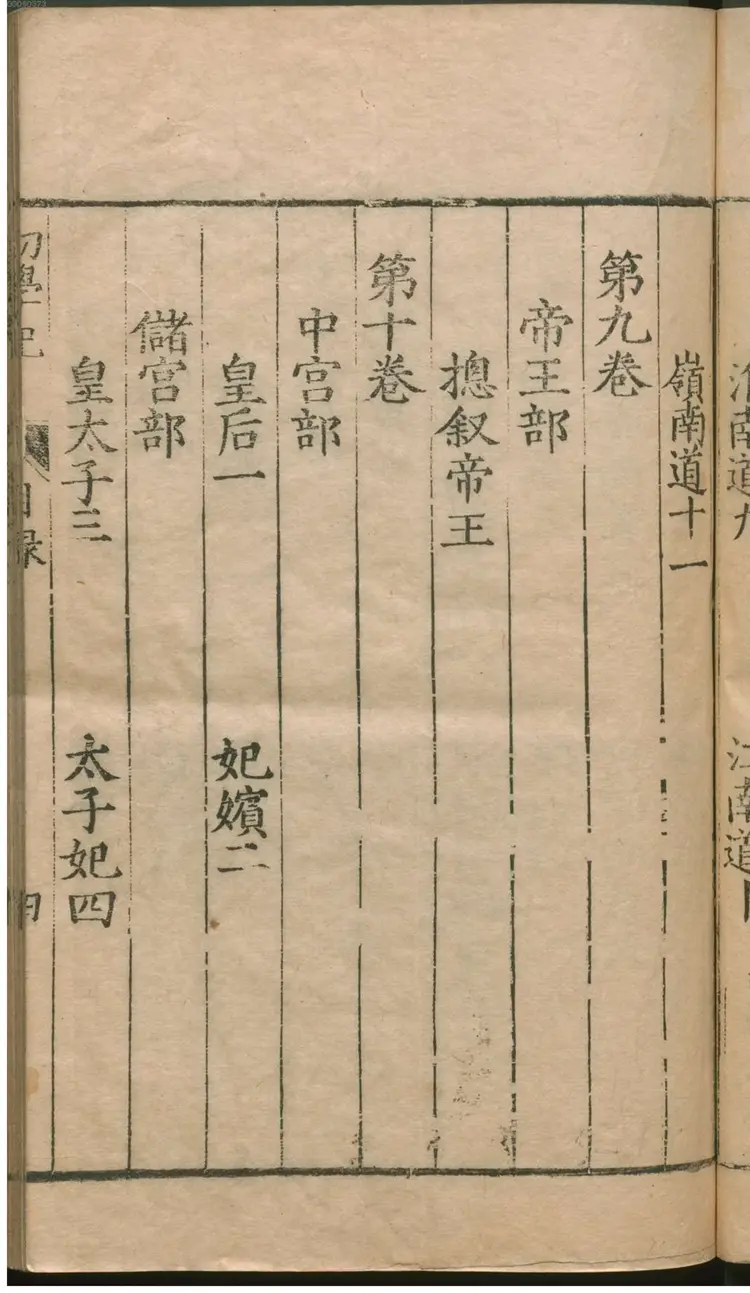 00080373
淮南道九　江南道
嶺南道十一
第九卷
帝王部
揔叙帝王
第十卷
中宫部
皇后一　妃嬪二
儲宫部
皇太子三　太子妃四
初學記　目録　四